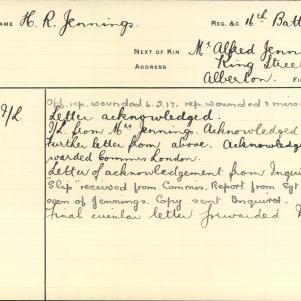 NAME H. R. Jennings. REG. &C 16th Batt
NEXT OF KIN Mr Alfred Jenn
ADDRESS King Street
Alberton.
Off. rep. wounded 6.2.17. rep. wounded & miss
Letter acknowledged.
I/L. I/L from Mrs Jennings. Acknowledged
Further letter from above. Acknowledge
warded Commis London.
Letter of acknowledgement from Inquir
Slip" received from Commis. Report from Sgt
ogen of Jennings. Copy sent Inquirer.
Final circular letter forwarded